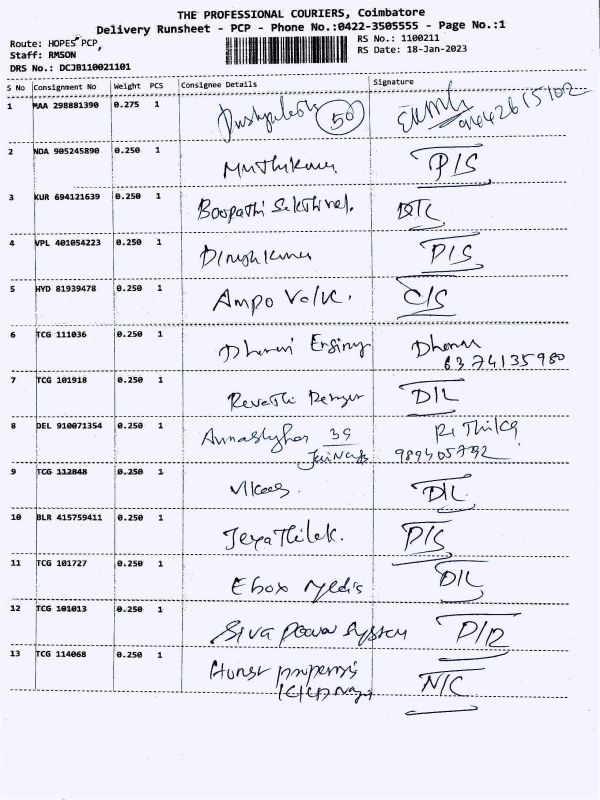 THE PROFESSIONAL COURIERS, Coimbatore
Delivery Runsheet - PCP - Phone No.:0422-3505555 - Page No.:1
Route: HOPES PCP,
RS No.: 1100211
Staff: RMSON
RS Date: 18-Jan-2023
DRS No.: DCJB110021101
S No Consignment No Weight PCS Consignee Details Signature
1 MAA 298881390 0.275 1 50
2 NDA 905245890 0.250 1 Muthikumar P/S
3 KUR 694121639 0.250 1 Boopathi Sakthivel.
4 VPL 401054223 0.250 1 Dineshkumar P/S
5 HYD 81939478 0.250 1 Ampo Valve. C/S
6 TCG 111036 0.250 1 Dharani
6374135980
7 TCG 101918 0.250 1 Revathi D/L
8 DEL 910071354 0.250 1 39 Rithika
9 TCG 112848 0.250 1 Vikas. D/L
10 BLR 415759411 0.250 1 Jeyathilak. P/S
11 TCG 101727 0.250 1 Ebox D/L
12 TCG 101013 0.250 1 Siva power system D/R
13 TCG 114068 0.250 1 N/C